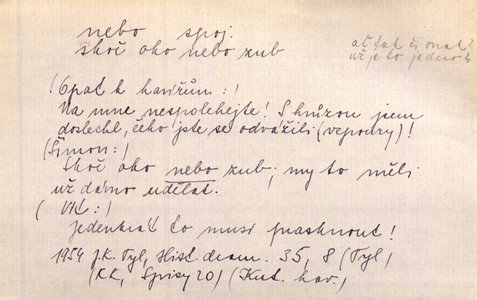 nebo spoj.
skoč oko nebo zub
ať tak či onak?
už je to jedno
(Opat k havířům:)
Na mne nespoléhejte! S hrůzou jsem
doslechl, čeho jste se odvážili (vzpoury)!
(Šimon:)
Skoč oko nebo zub; my to měli
už dávno udělat.
(Vít:)
Jedenkrát to musí prasknout!
1954 J.K. Tyl, Hist. dram. 35, 8 (Tyl)
(KK, Spisy 20) (Kut. hav.)